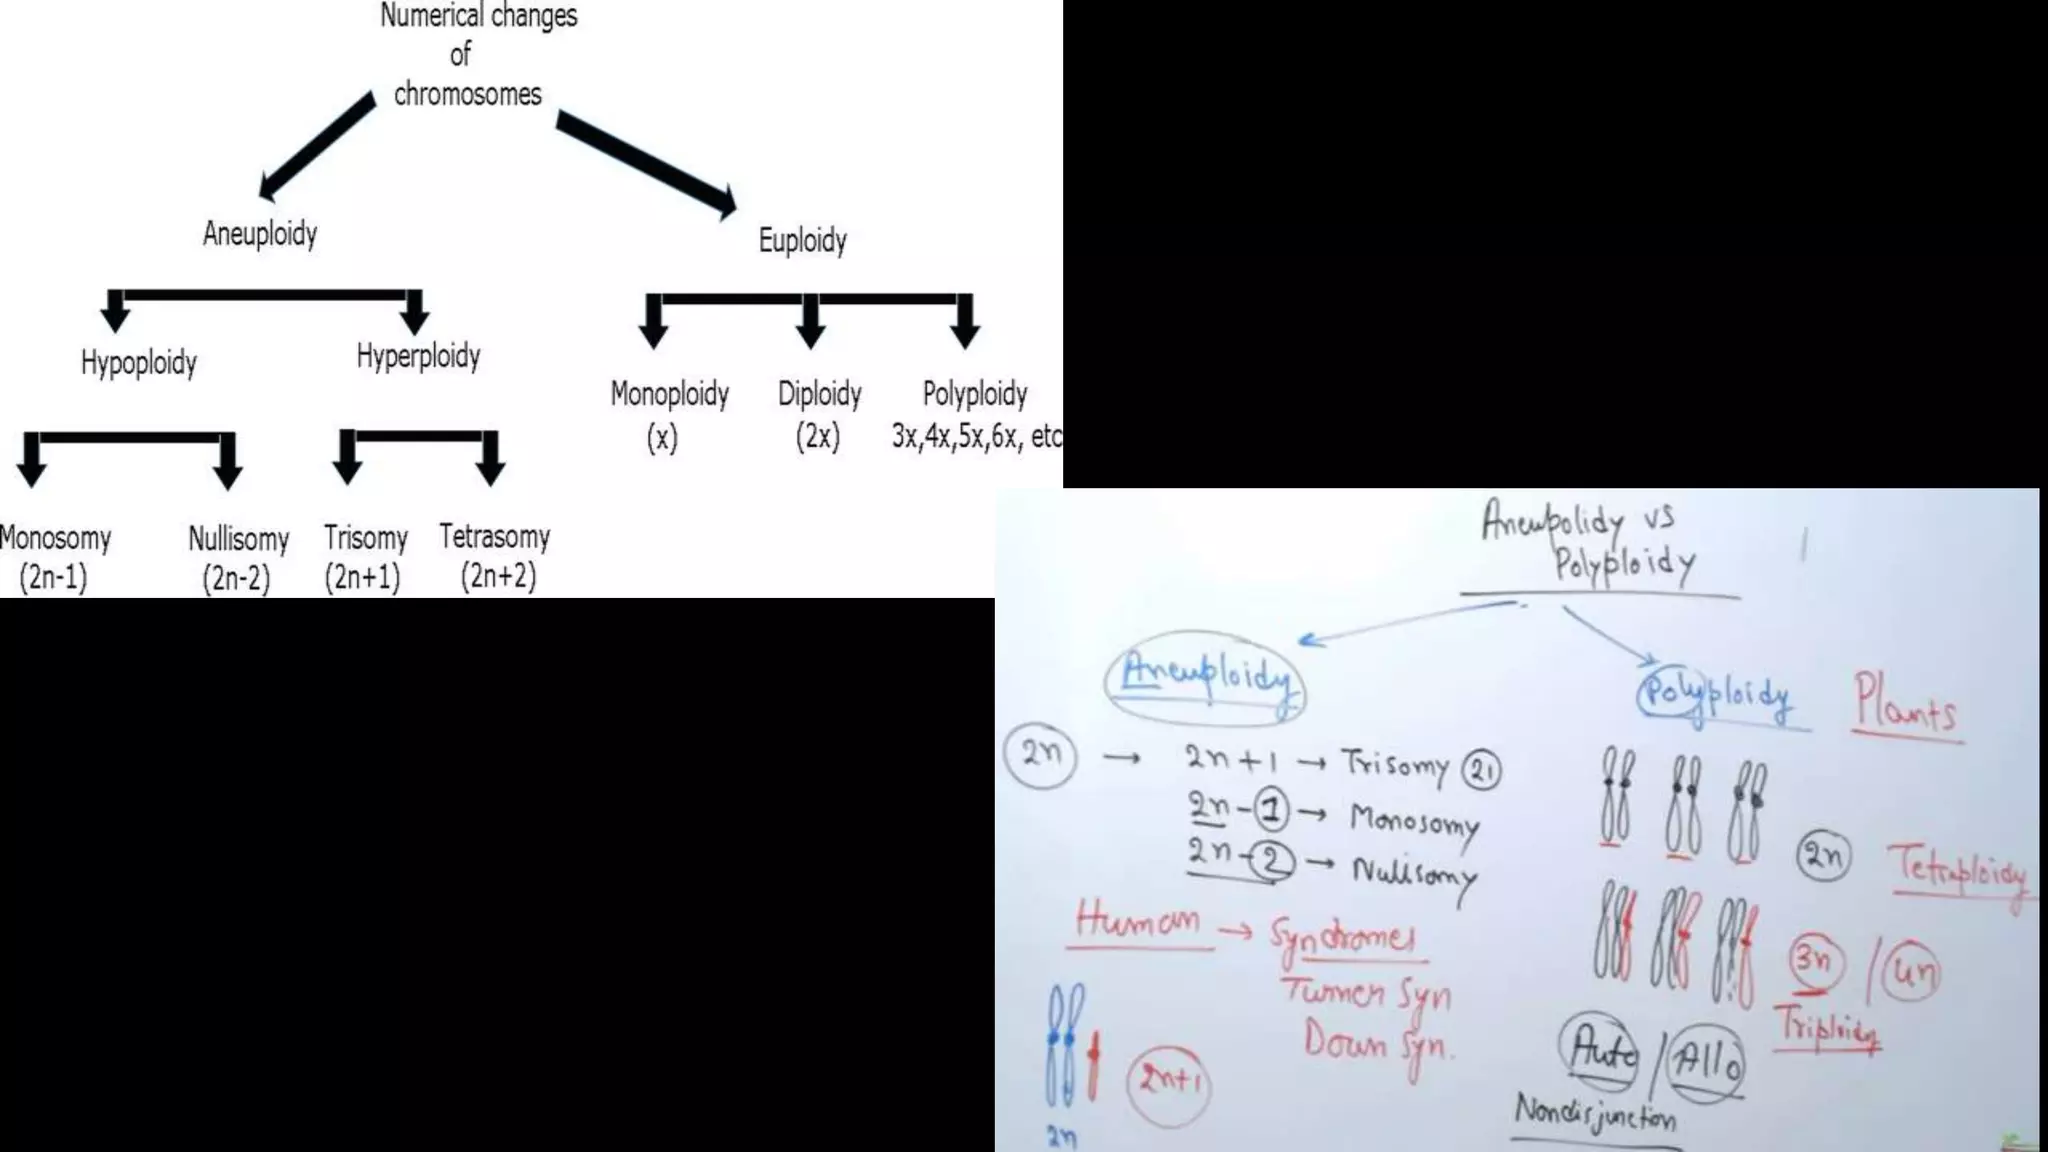 Numerical changes
of
chromosomes
Aneuploidy
Euploidy
Hypoploidy
Hyperploidy
Monoploidy
(x)
Diploidy
(2x)
Polyploidy
3x,4x,5x,6x, etc
Monosomy
(2n-1)
Nullisomy
(2n-2)
Trisomy
(2n+1)
Tetrasomy
(2n+2)
Aneupolidy vs
Polyploidy
Aneuploidy
2n → 2n+1 → Trisomy 21
2n-1 → Monosomy
2n-2 → Nullisomy
Human → Syndromes
Turner Syn
Down Syn.
2n+1
2n
Polyploidy
Plants
2n
Tetraploidy
3n / 4n
Triploidy
Auto / Allo
Nondisjunction